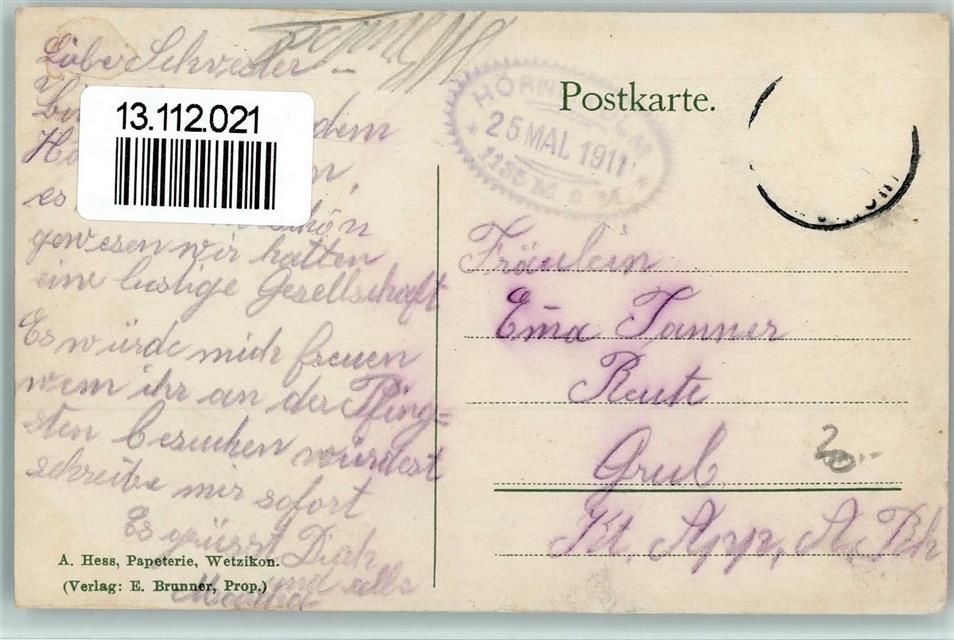 Liebe Schwester
13.112.021
dem
es schön
gewesen wir hatten
eine lustige Gesellschaft
Es würde mich freuen
wem ihr an der Pfing=
sten besuchen würdest
schreibe mir sofort
Es grüsst Dich
und alle
A. Hess, Papeterie, Wetzikon.
(Verlag: E. Brunner, Prop.)
Postkarte.
25 MAI. 1911
1135 M. ü. M.
Fräulein
Em̄a Tanner
Reute
Grub
Kt. App. A Rh
20.-